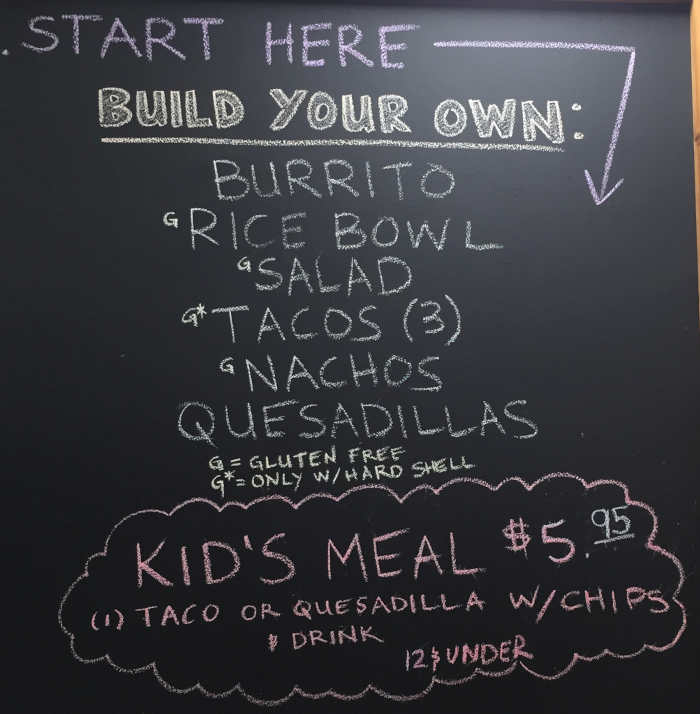 START HERE
BUILD YOUR OWN:
BURRITO
G RICE BOWL
G SALAD
G* TACOS (3)
G NACHOS
QUESADILLAS
G = GLUTEN FREE
G* = ONLY W/HARD SHELL
KID'S MEAL $5.95
(1) TACO OR QUESADILLA W/CHIPS
& DRINK
12 & UNDER